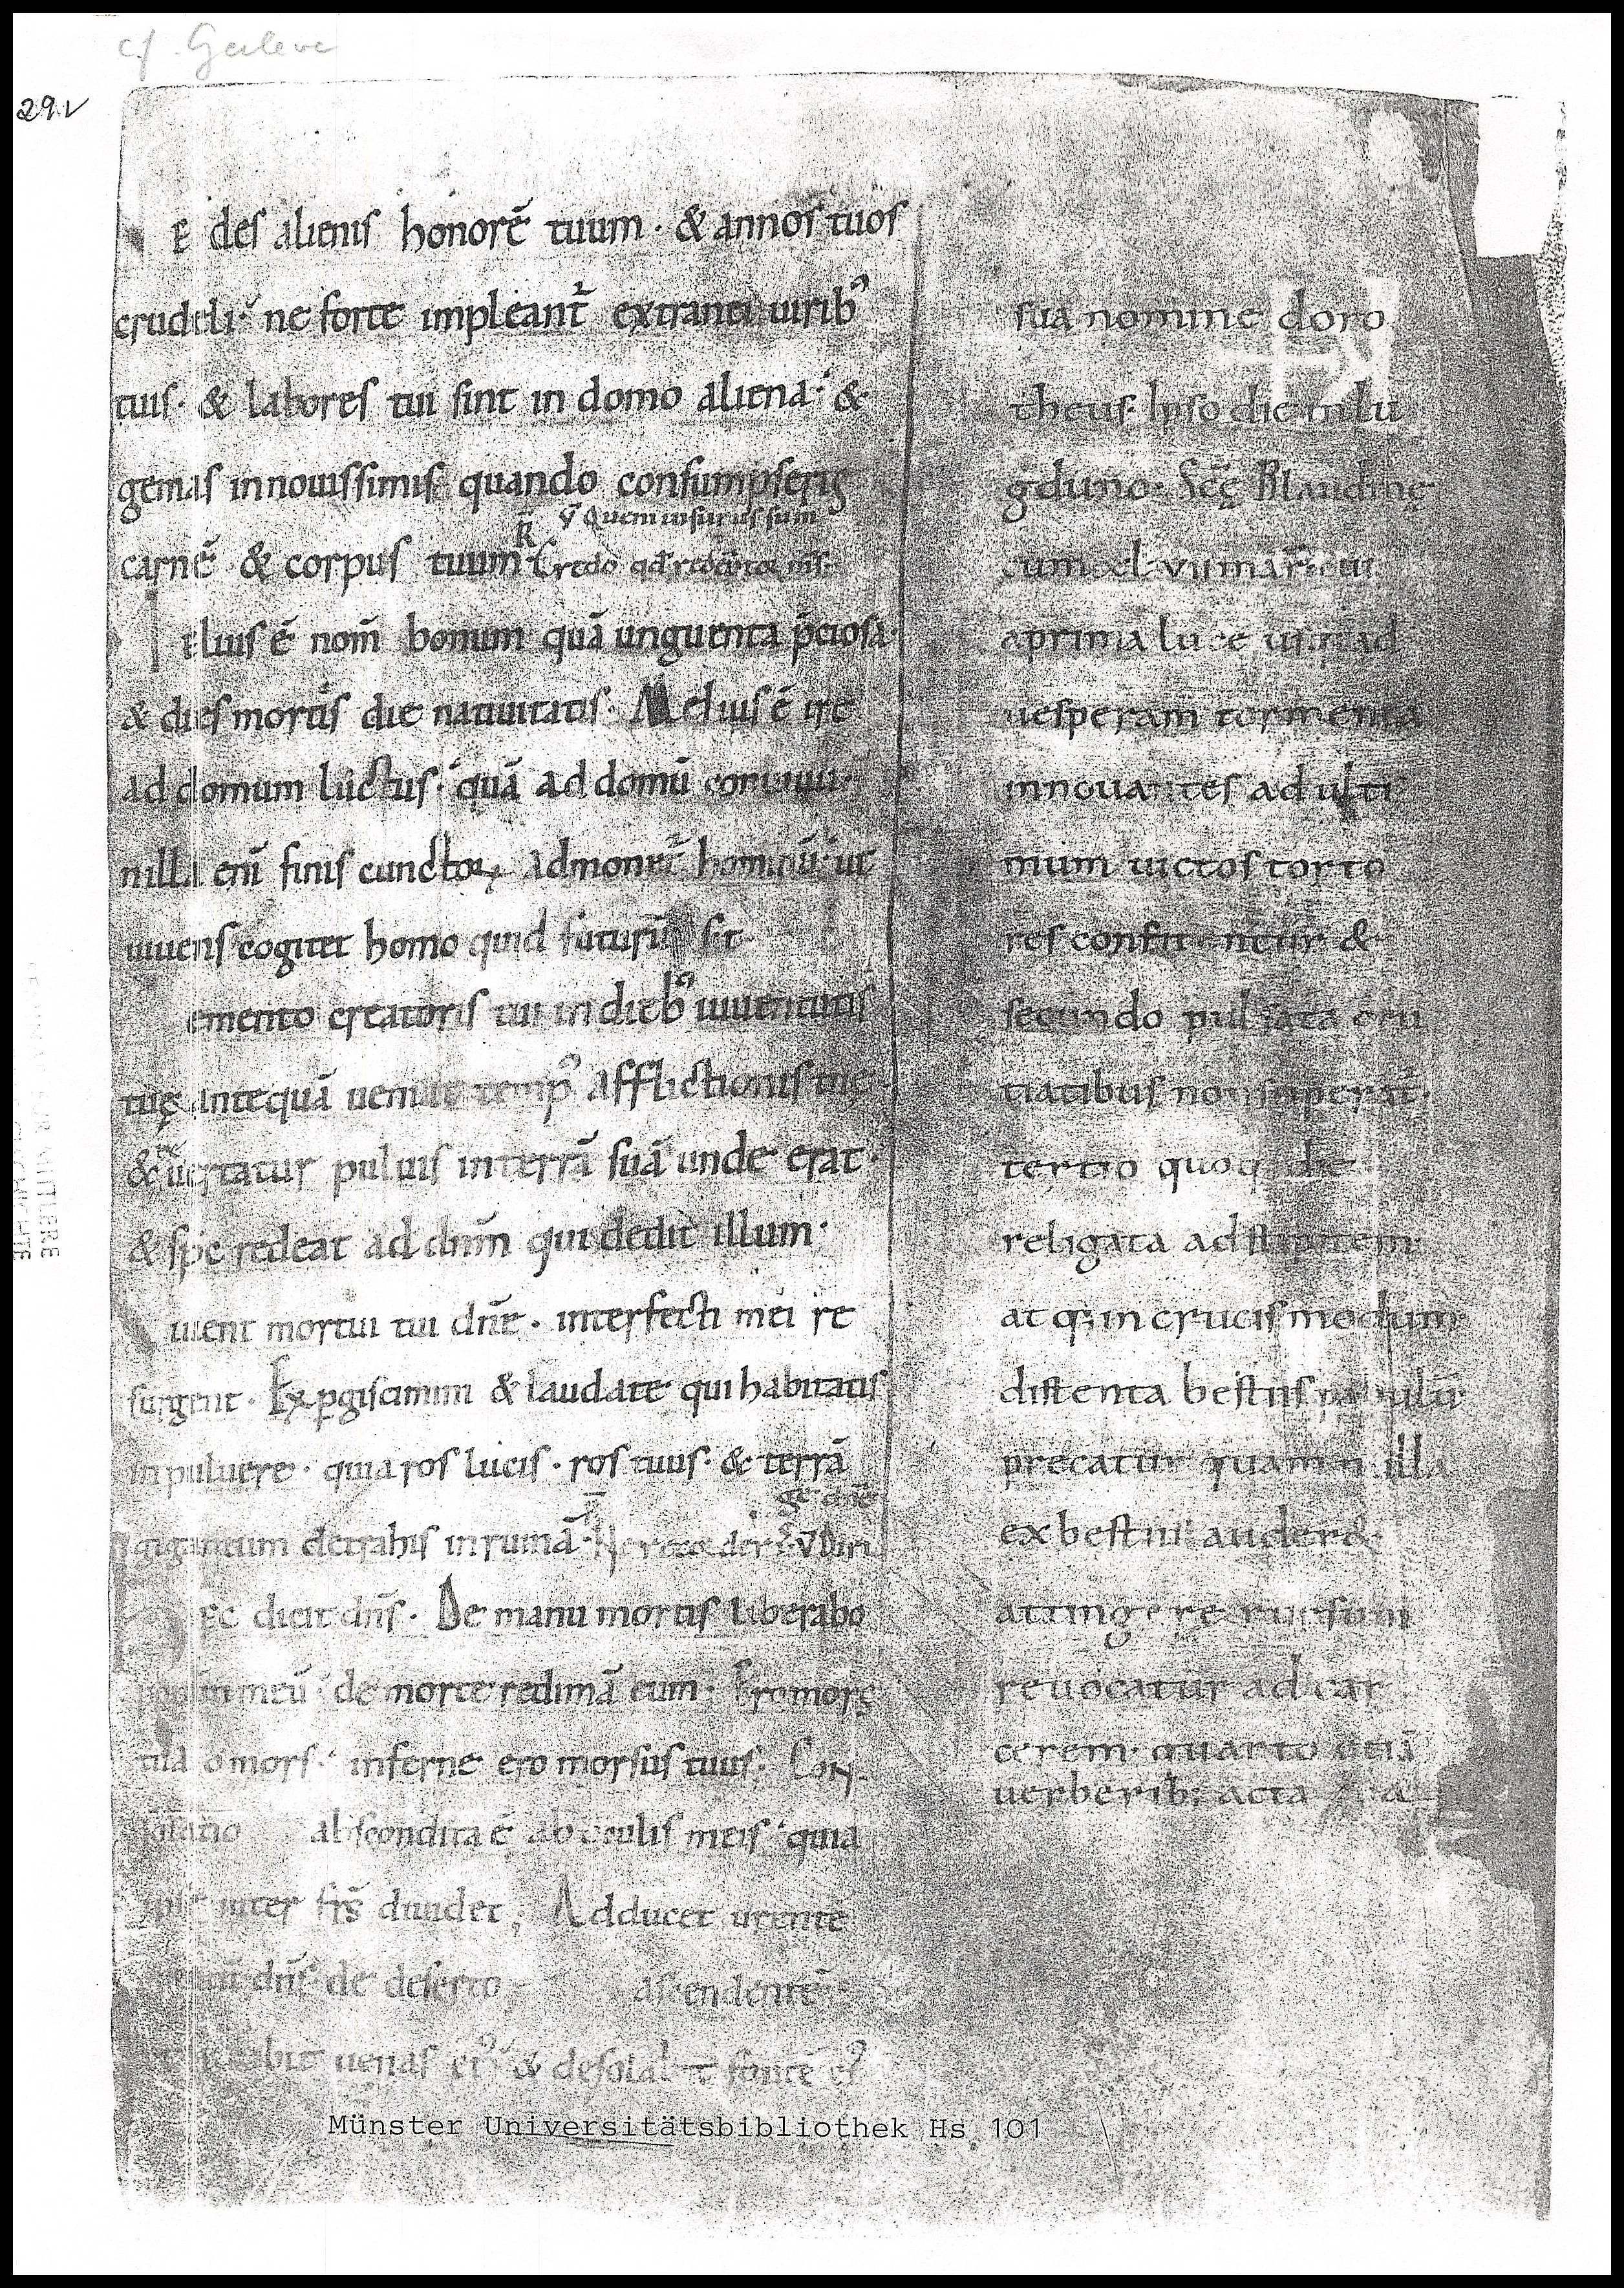 cf. Geleve
29v
E des alienis honorē tuum · & annos tuos
crudeli · ne forte impleant̄ extranei uirib᾽
tuis · & labores tui sint in domo aliena · &
gemas in nouissimis quando consumpseris
℣ Quem uisurus sum
carnē & corpus tuum ℟ Credo qd redēptor ms
elius ē nom̄ bonum quā unguenta p̄ciosa ·
& dies mortis die natiuitatis · Melius ē ire
ad domum luctus · quā ad domū conuiuii ·
nilla eni finis cunctoꝝ admonet̄ hominū · ut
uiuens cogitet homo quid futurū sit
emento creatoris tui in dieb᾽ iuuentutis
tuę antequā ueniat temp᾽ afflictionis tuę
& reuertatur puluis in terrā suā unde erat ·
& spc redeat ad dnm̄ qui dedit illum ·
uient mortui tui dnē · interfecti mei re
surgent · Expgiscimini & laudate qui habitatis
in puluere · quia ros lucis · ros tuus · & terrā
ge dnē
gigantum detrahis in ruinā · Ne recorderis ℣ Diri
Ec dicit dn̄s · De manu mortis liberabo
poplm meū · de morte redimā eum · Ero mors
tua o mors · inferne ero morsus tuus · Con
solatio abscondita ē ab oculis meis · quia
ipse inter frs̄ diuidet ; Adducet urente
dn̄s · de deserto ascendentē
uenas ei᾽ & desolabit fontē ei᾽
sua nomine doro
theus · Ipso die in lu
gduno · Scę Blandinę
cum xl · vii mar̄
a prima luce usq; ad
uesperam tormenta
innouantes ad ulti
mum uictos torto
res confitentur &
secundo pulsata cru
tiatibus non superat̄ ·
tertio quoq; die
religata ad stipitem ·
atq; in crucis modum ·
distenta bestiis pabulū ·
precatur quam n illa
ex bestiis auderet
attingere rursum
reuocatur ad car
cerem · quarto etiā
uerberib; acta
Münster Universitätsbibliothek Hs 101